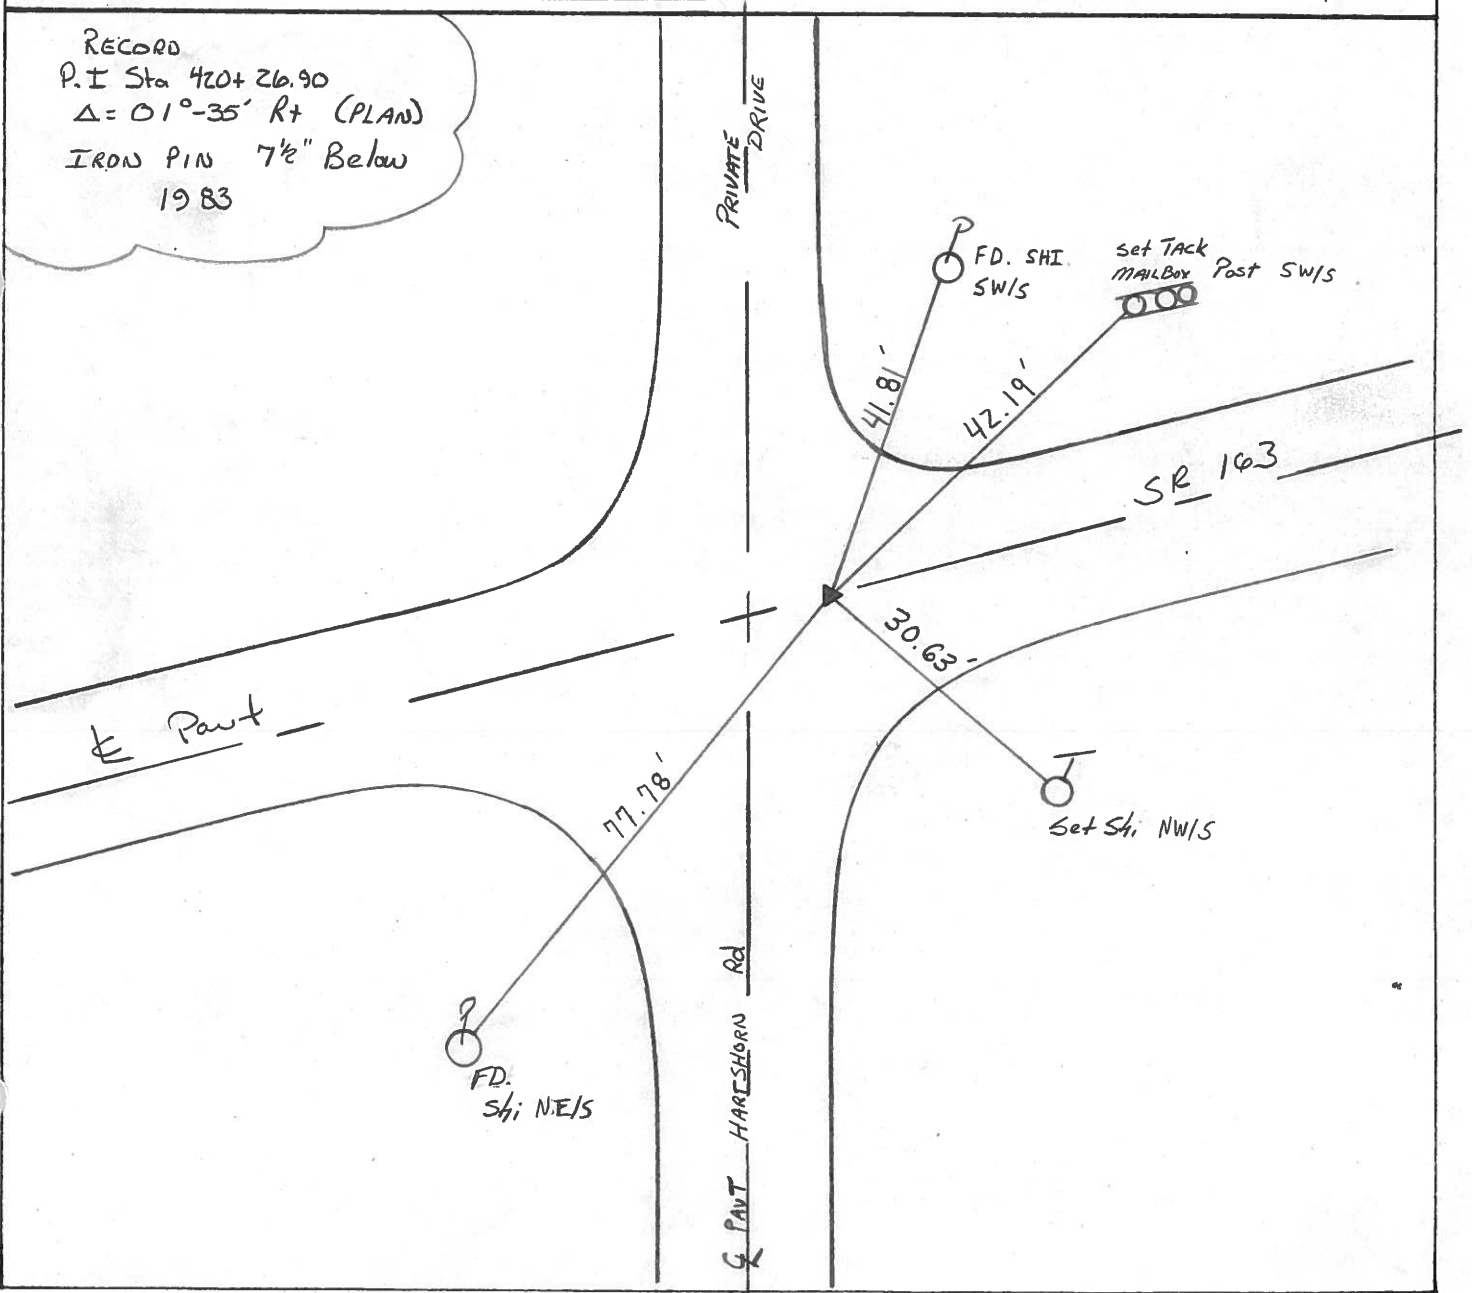 RECORD
P.I Sta 420+26.90
Δ= 01°-35' Rt (PLAN)
IRON PIN 7½" Below
1983
PRIVATE
DRIVE
P
FD. SHI.
SW/S
Set TACK
MAILBOX Post SW/S
41.81'
42.19'
SR 163
30.63'
℄ Pavt
77.78'
T
Set Shi NW/S
P
FD.
Shi N.E/S
℄ PAVT HARTSHORN Rd